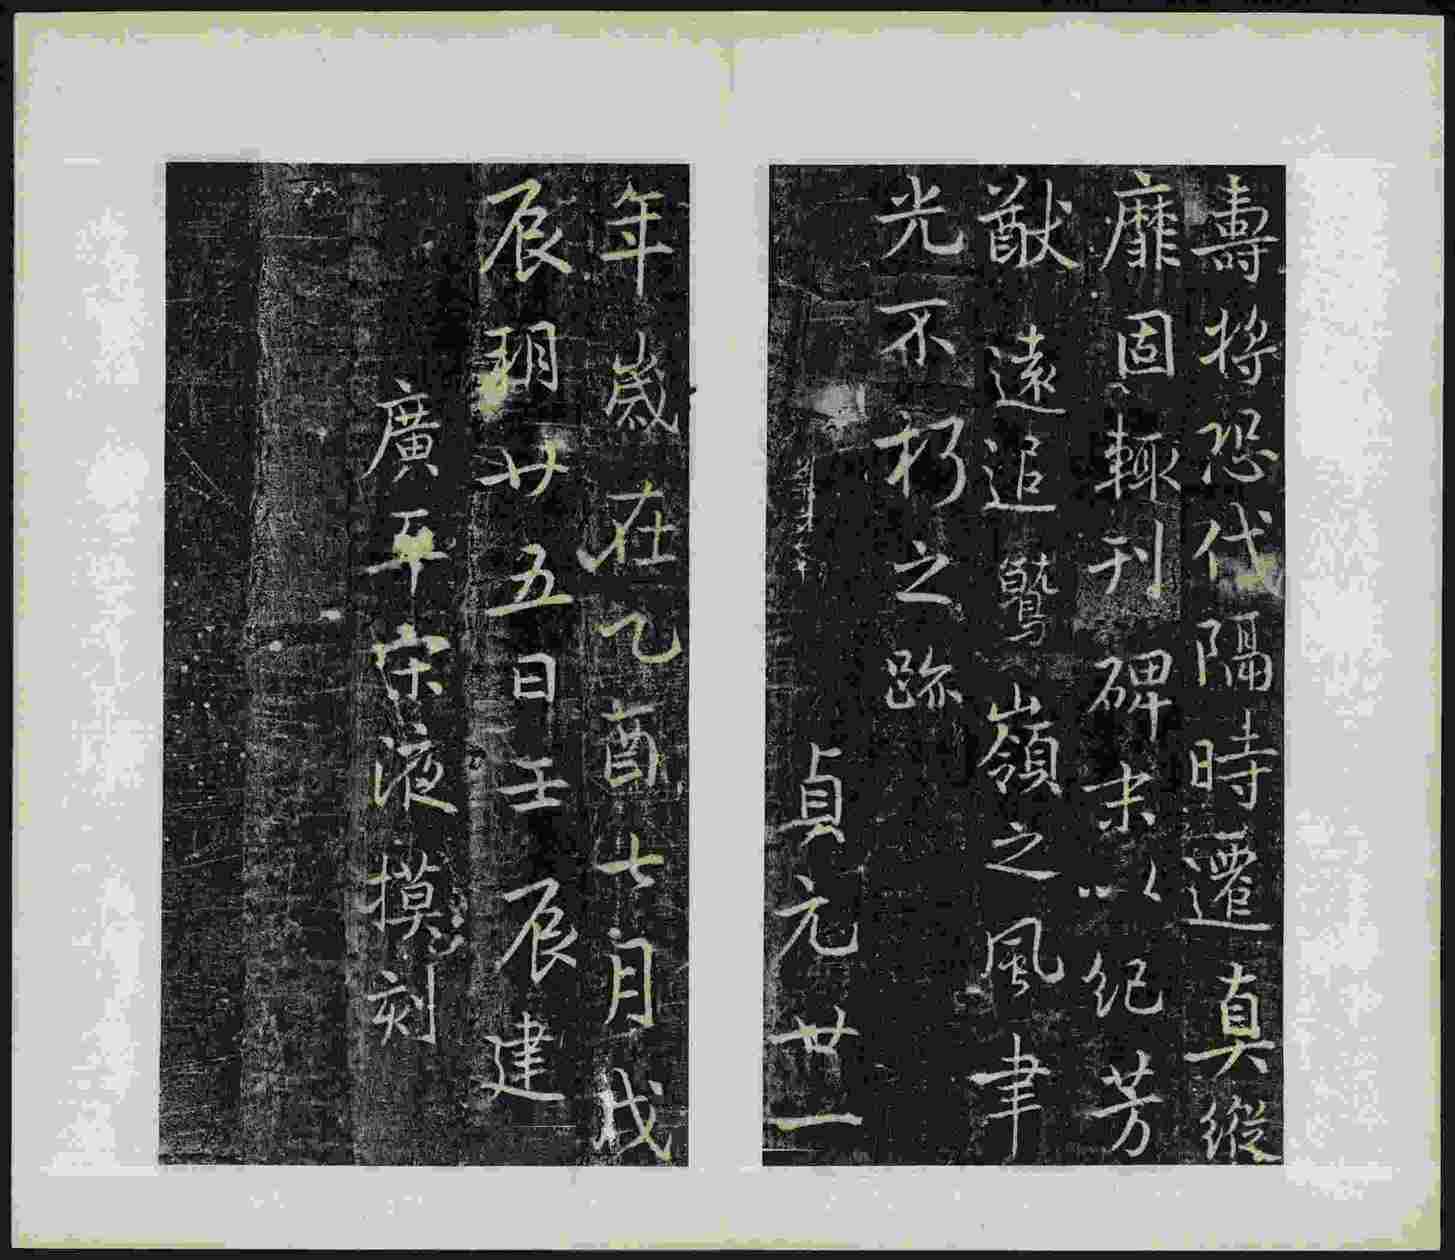 壽將恐代隔時遷真縱
靡固輙刊碑末以紀芳
猷遠追鷲嶺之風聿
光不朽之跡
貞元廿一
年歲在乙酉七月戊
辰朔廿五日壬辰建
廣平宋液摸刻